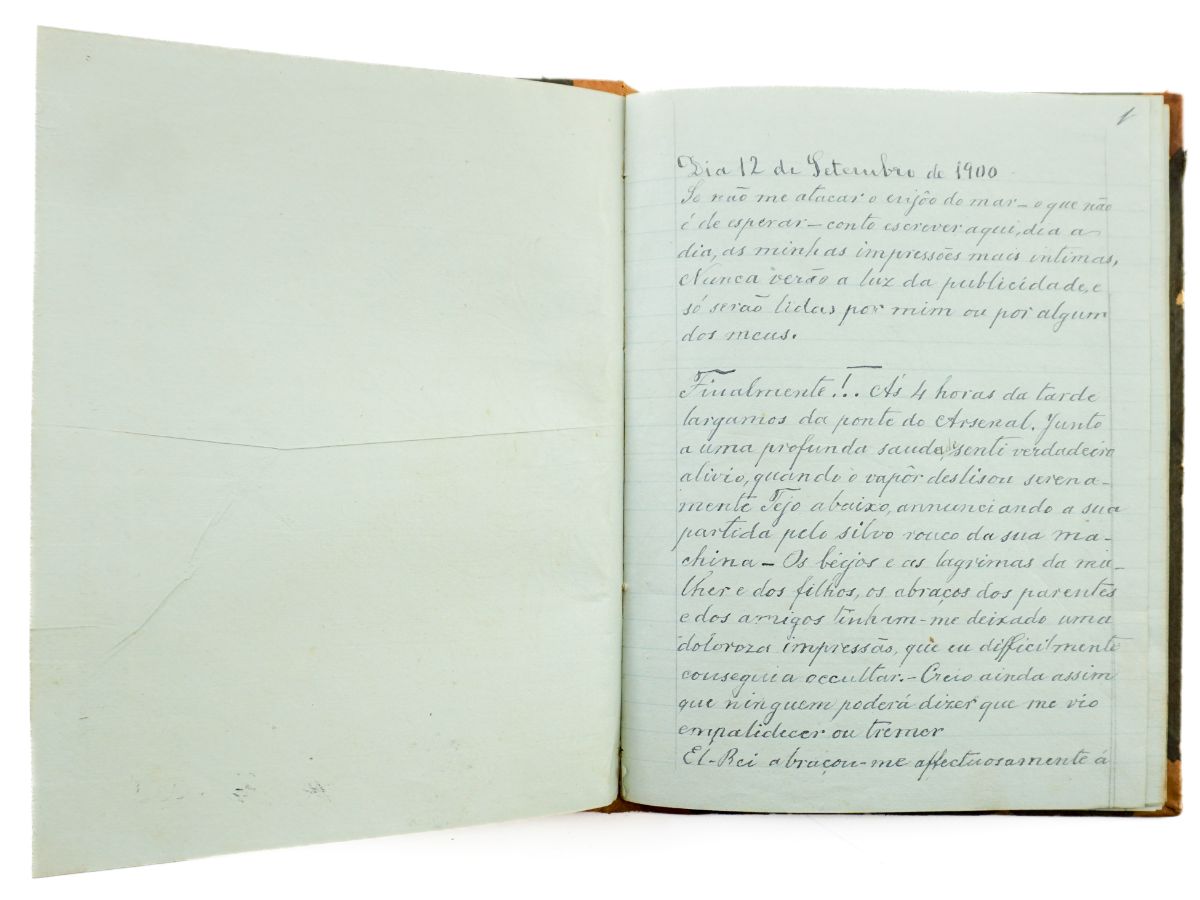 1
Dia 12 de Setembro de 1900
Se não me atacar o enjôo do mar – o que não
é de esperar – conto escrever aqui, dia a
dia, as minhas impressões mais intimas.
Nunca verão a luz da publicidade, e
só serão lidas por mim ou por algum
dos meus.
Finalmente!.. Ás 4 horas da tarde
largamos da ponte do Arsenal. Junto
a uma profunda saude, senti verdadeiro
alivio, quando o vapôr deslisou serena-
mente Tejo abaixo, annunciando a sua
partida pelo silvo rouco da sua ma-
china – Os beijos e as lagrimas da mu-
lher e dos filhos, os abraços dos parentes
e dos amigos tinham-me deixado uma
doloroza impressão, que eu difficilmente
conseguia occultar. – Creio ainda assim
que ninguem poderá dizer que me vio
empalidecer ou tremer
El-Rei abraçou-me affectuosamente á